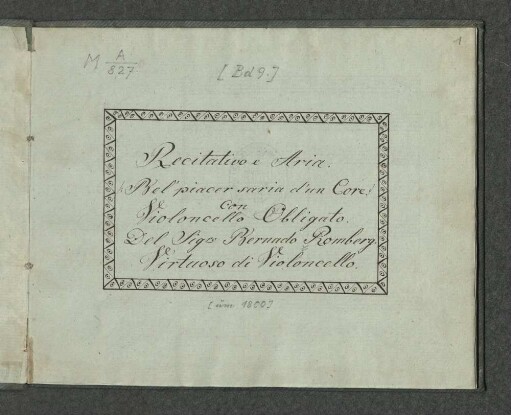 M A/827
[Bd 9.]
1
Recitativo e Aria.
(Bel' piacer saria d'un Core)
con
Violoncello Obligato.
Del Sigr Bernardo Romberg.
Virtuoso di Violoncello.
[um 1800]